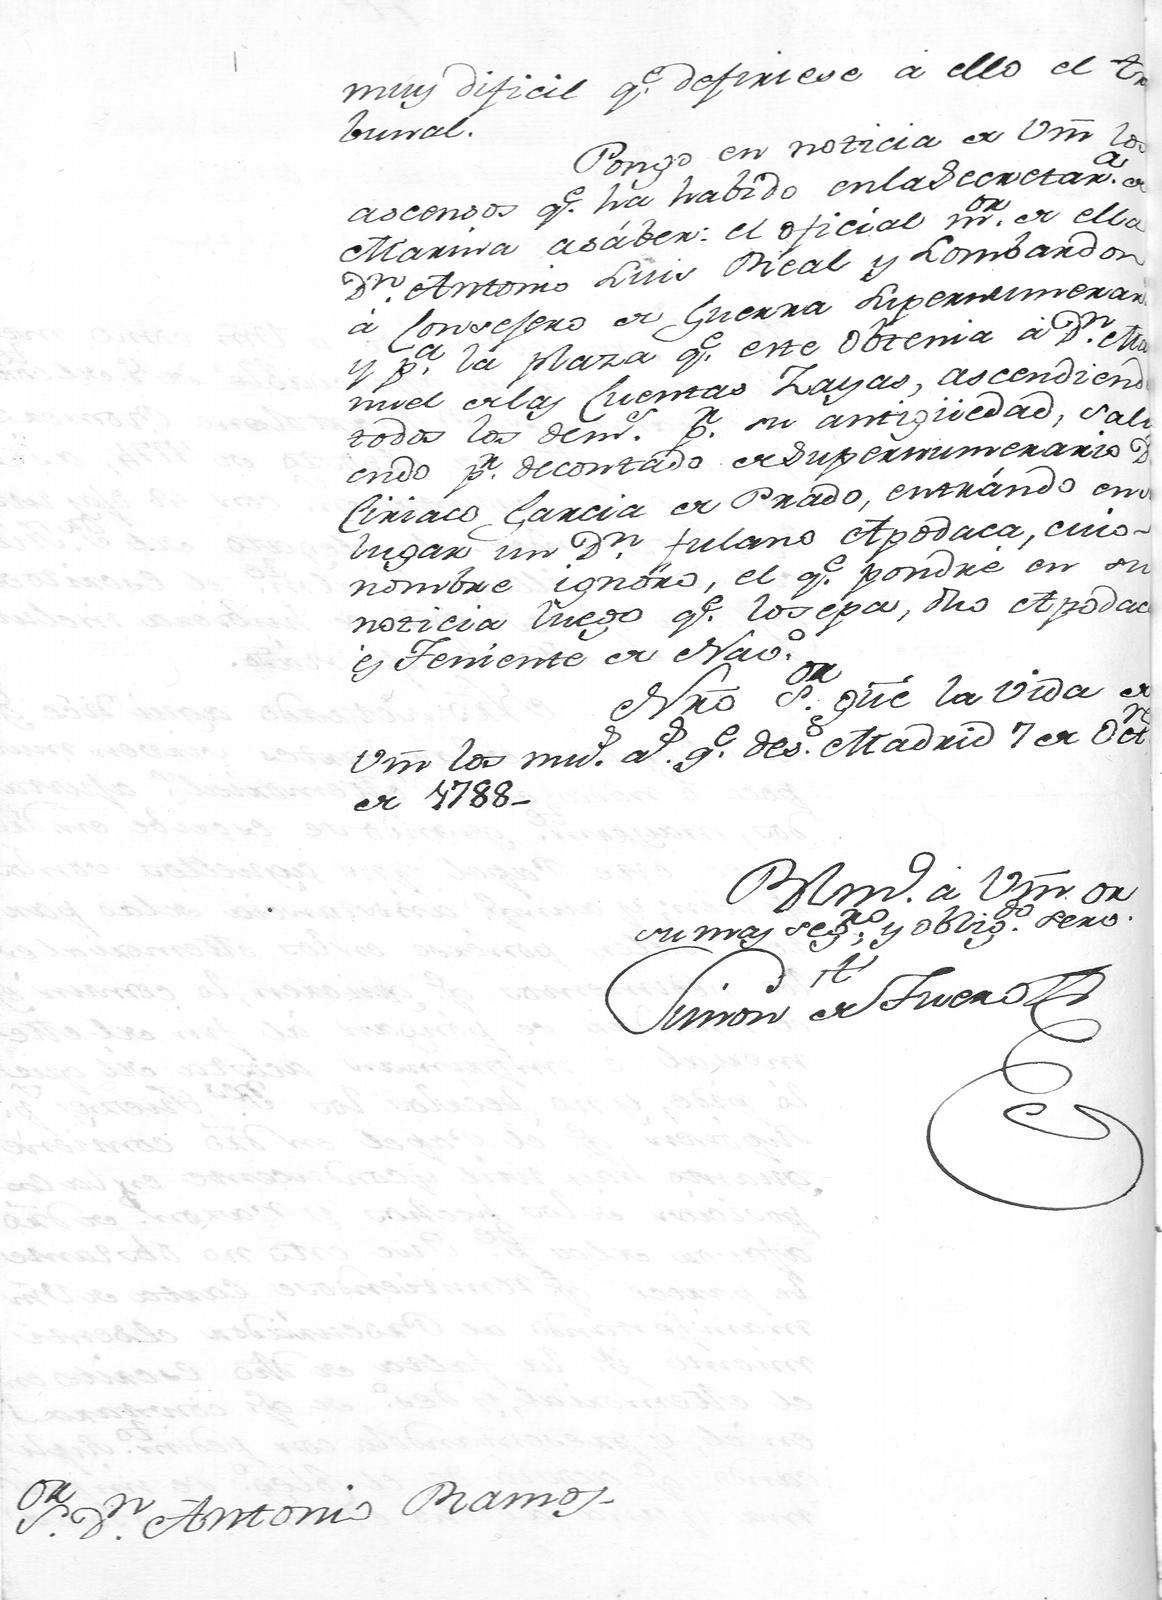 muy dificil q.e defiriese à ello el tri
bunal.
Pongo en noticia de Vm̃ los
ascensos q.e ha habido enla Secretar.a de
Marina asáber: el oficial m.or de ella
D.n Antonio Luis Real y Lombardon
à Consejero de Guerra Supernumerar
y p.a la plaza q.e este Obtenia à D.n Ma
nuel delas Cuentas Zayas, ascendiend
todos los dem.s p.r su antigüedad, sali
endo p.r decontado de Supernumerario D
Ciriaco Garcia de Prado, entrándo en
lugar un D.n fulano Apodaca, cuio-
nombre ignóro, el q.e pondré en su
noticia luego q.e losepa, dho Apodac
es Teniente de Nav.o
Nrõ S.or gũe la Vida de
Vm̃ los mu.s a.s q.e des.o Madrid 7 de Oct.re
de 1788-
BLm.o à Vm̃ su mas seg.ro, y oblig.do serv.r
Simon de Fuero
S.or D.n Antonio Ramos-